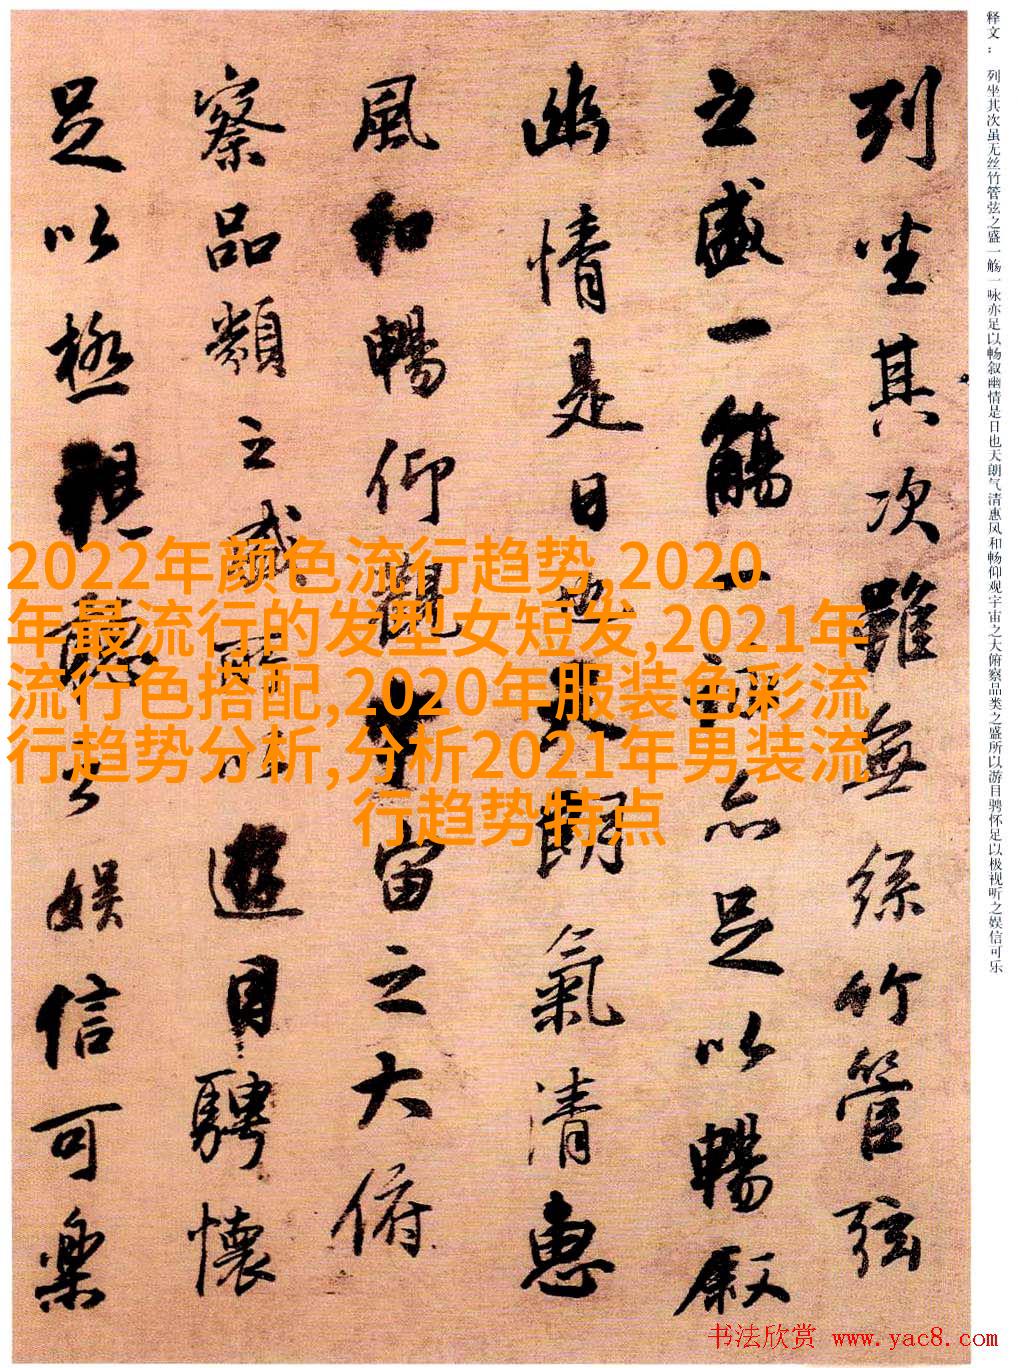 释文： 列坐其次虽无丝竹管弦之盛一觞一咏亦足以畅叙幽情是日也天朗气清惠风和畅仰观宇宙之大俯察品类之盛所以游目骋怀足以极视听之娱信可乐
列坐其次雖無絲竹管弦
之盛一觴一詠亦足以暢叙
幽情是日也天朗氣清惠
風和暢仰觀宇宙之大俯
察品類之盛所以遊目騁懷
足以極視聽之娛信可樂
2022年颜色流行趋势,2020
年最流行的发型女短发,2021年
流行色搭配,2020年服装色彩流
行趋势分析,分析2021年男装流
行趋势特点
书法欣赏 www.yac8.com